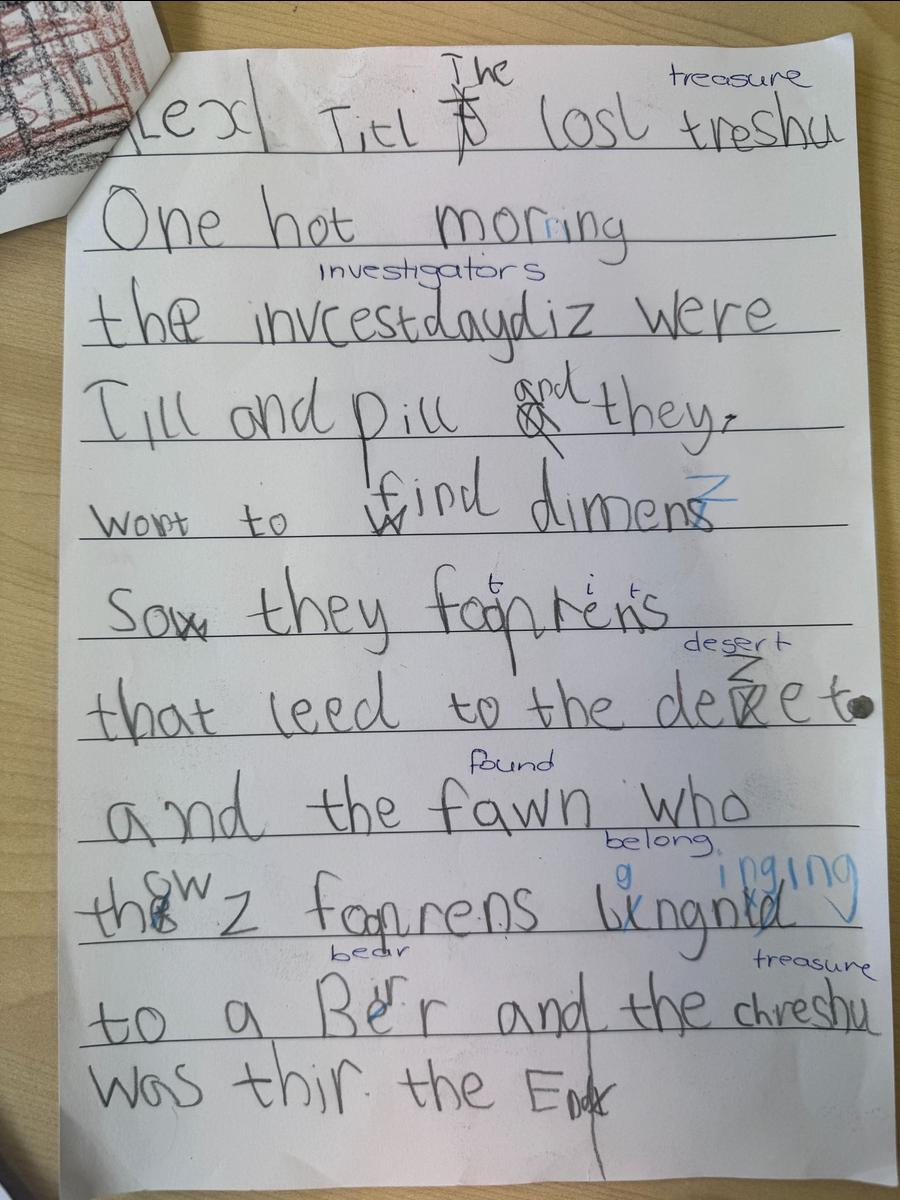 The treasure
Lexl Titl lost treshu
One hot morning
investigators
the invcestdaydiz were
Till and pill and they,
wont to find dimenz
t i t
Sow they foqprens
desert
that leed to the dezet
found
and the fawn who
belong
g inging
thow z foqprens
bear treasure
to a Ber and the chreshu
was thir. the End